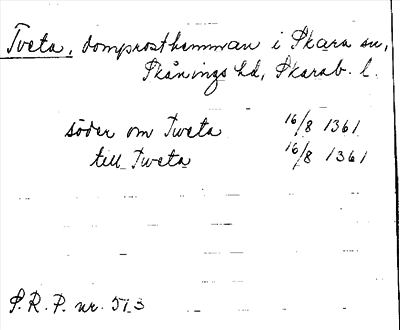 Tveta, domprosthemman i Skara sn,
Skånings hd, Skarab. l.
söder om Tweta 16/8 1361
till Tweta 16/8 1361
S. R. P. nr. 513